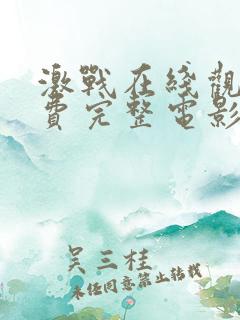 激戰在綫觀
費完整電影
吴三桂
未经同意禁止转载